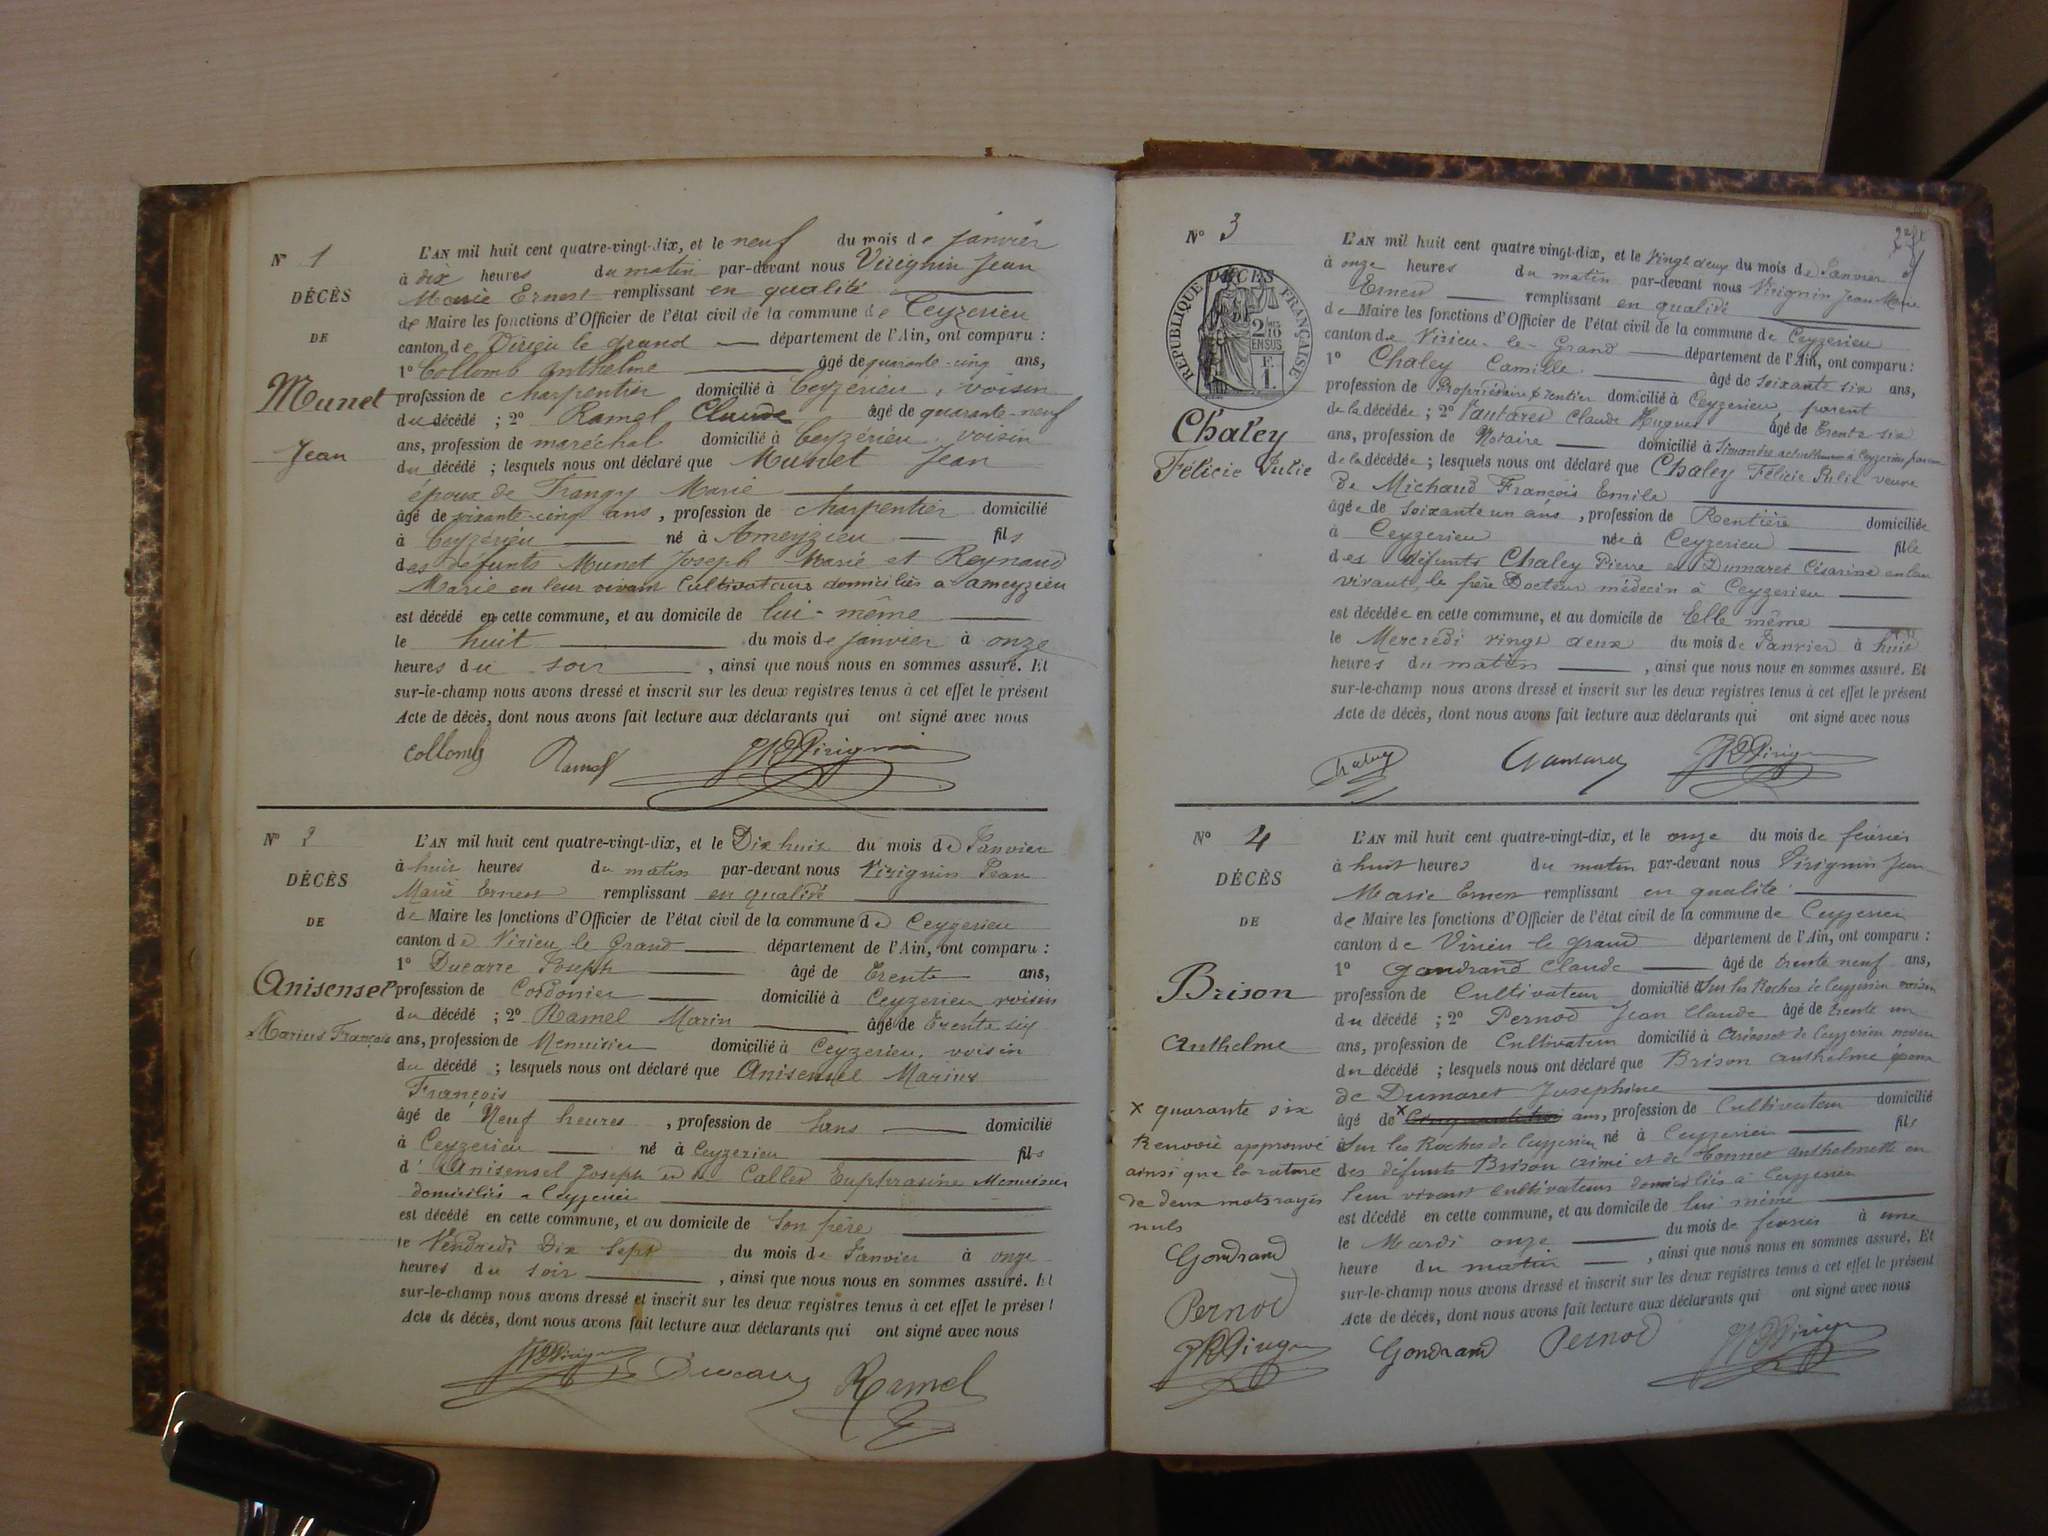 N° 1
DÉCÈS
DE
Munet
Jean
L'AN mil huit cent quatre-vingt-dix, et le neuf du mois de janvier
à dix heures du matin par-devant nous Virignin Jean
Marie Ernest remplissant en qualité
de Maire les fonctions d'Officier de l'état civil de la commune de Ceyzerieu
canton de Virieu le grand département de l'Ain, ont comparu :
1° Collomb Anthelme âgé de quarante-cinq ans,
profession de charpentier domicilié à Ceyzérieu, voisin
du décédé ; 2° Ramel Claude âgé de quarante-neuf
ans, profession de maréchal domicilié à Ceyzérieu, voisin
du décédé ; lesquels nous ont déclaré que Munet Jean
époux de Frangy Marie
âgé de soixante-cinq ans, profession de charpentier domicilié
à Ceyzérieu né à Ameyzieu fils
des défunts Munet Joseph Marie et Reynaud
Marie en leur vivant Cultivateurs domiciliés a ameyzieu
est décédé en cette commune, et au domicile de lui-même
le huit du mois de janvier à onze
heures du soir, ainsi que nous nous en sommes assuré. Et
sur-le-champ nous avons dressé et inscrit sur les deux registres tenus à cet effet le présent
Acte de décès, dont nous avons fait lecture aux déclarants qui ont signé avec nous
Collomb Ramel JME Virignin
N° 2
DÉCÈS
DE
Anisensel
Marius François
L'AN mil huit cent quatre-vingt-dix, et le Dix huit du mois de Janvier
à huit heures du matin par-devant nous Virignin Jean
Marie Ernest remplissant en qualité
de Maire les fonctions d'Officier de l'état civil de la commune de Ceyzerieu
canton de Virieu le Grand département de l'Ain, ont comparu :
1° Ducarre Joseph âgé de trente ans,
profession de Cordonier domicilié à Ceyzerieu voisin
du décédé ; 2° Ramel Marin âgé de trente six
ans, profession de Menuisier domicilié à Ceyzerieu, voisin
du décédé ; lesquels nous ont déclaré que Anisensel Marius
François
âgé de Neuf heures, profession de Sans domicilié
à Ceyzerieu né à Ceyzerieu fils
d'Anisensel Joseph et de Callet Euphrasine Menuisier
domiciliés a Ceyzerieu
est décédé en cette commune, et au domicile de Son père
le Vendredi Dix Sept du mois de Janvier à onze
heures du soir, ainsi que nous nous en sommes assuré. Et
sur-le-champ nous avons dressé et inscrit sur les deux registres tenus à cet effet le présent
Acte de décès, dont nous avons fait lecture aux déclarants qui ont signé avec nous
JME Virignin Ducarre Ramel
N° 3
DÉCÈS
RÉPUBLIQUE FRANÇAISE
2 10
EN SUS
F.
1.
Chaley
Félicie Julie
L'AN mil huit cent quatre-vingt-dix, et le vingt deux du mois de Janvier
à onze heures du matin par-devant nous Virignin Jean Marie
Ernest remplissant en qualité
de Maire les fonctions d'Officier de l'état civil de la commune de Ceyzerieu
canton de Virieu-le-Grand département de l'Ain, ont comparu :
1° Chaley Camille âgé de soixante six ans,
profession de Propriétaire rentier domicilié à Ceyzerieu, parent
de la décédée ; 2° Claude Hugues âgé de trente six
ans, profession de Notaire domicilié à
de la décédée ; lesquels nous ont déclaré que Chaley Félicie Julie veuve
de Michaud François Emile
âgée de Soixante un ans, profession de Rentière domiciliée
à Ceyzerieu née à Ceyzerieu fille
des défunts Chaley Pierre et Dumaret Césarine en leur
vivant, le père Docteur médecin à Ceyzerieu
est décédée en cette commune, et au domicile de Elle même
le Mercredi vingt deux du mois de Janvier à huit
heures du matin, ainsi que nous nous en sommes assuré. Et
sur-le-champ nous avons dressé et inscrit sur les deux registres tenus à cet effet le présent
Acte de décès, dont nous avons fait lecture aux déclarants qui ont signé avec nous
Chaley JME Virignin
N° 4
DÉCÈS
DE
Brison
Anthelme
x quarante six
Renvoie approuvé
ainsi que la rature
de deux mots rayés
nuls
Gondrand
Pernod
JME Virignin
L'AN mil huit cent quatre-vingt-dix, et le onze du mois de février
à huit heures du matin par-devant nous Virignin Jean
Marie Ernest remplissant en qualité
de Maire les fonctions d'Officier de l'état civil de la commune de Ceyzerieu
canton de Virieu-le grand département de l'Ain, ont comparu :
1° Gondrand Claude âgé de trente neuf ans,
profession de Cultivateur domicilié à Sur les Roches de Ceyzerieu voisin
du décédé ; 2° Pernod Jean Claude âgé de trente un
ans, profession de Cultivateur domicilié à de Ceyzerieu neveu
du décédé ; lesquels nous ont déclaré que Brison Anthelme époux
de Dumaret Josephine
âgé de x ans, profession de Cultivateur domicilié
à Sur les Roches de Ceyzerieu né à Ceyzerieu fils
des défunts Brison aimé et de Connet Anthelmette en
leur vivant Cultivateurs domiciliés à Ceyzerieu
est décédé en cette commune, et au domicile de lui même
le Mardi onze du mois de février à une
heure du matin, ainsi que nous nous en sommes assuré. Et
sur-le-champ nous avons dressé et inscrit sur les deux registres tenus à cet effet le présent
Acte de décès, dont nous avons fait lecture aux déclarants qui ont signé avec nous
Gondrand Pernod JME Virignin